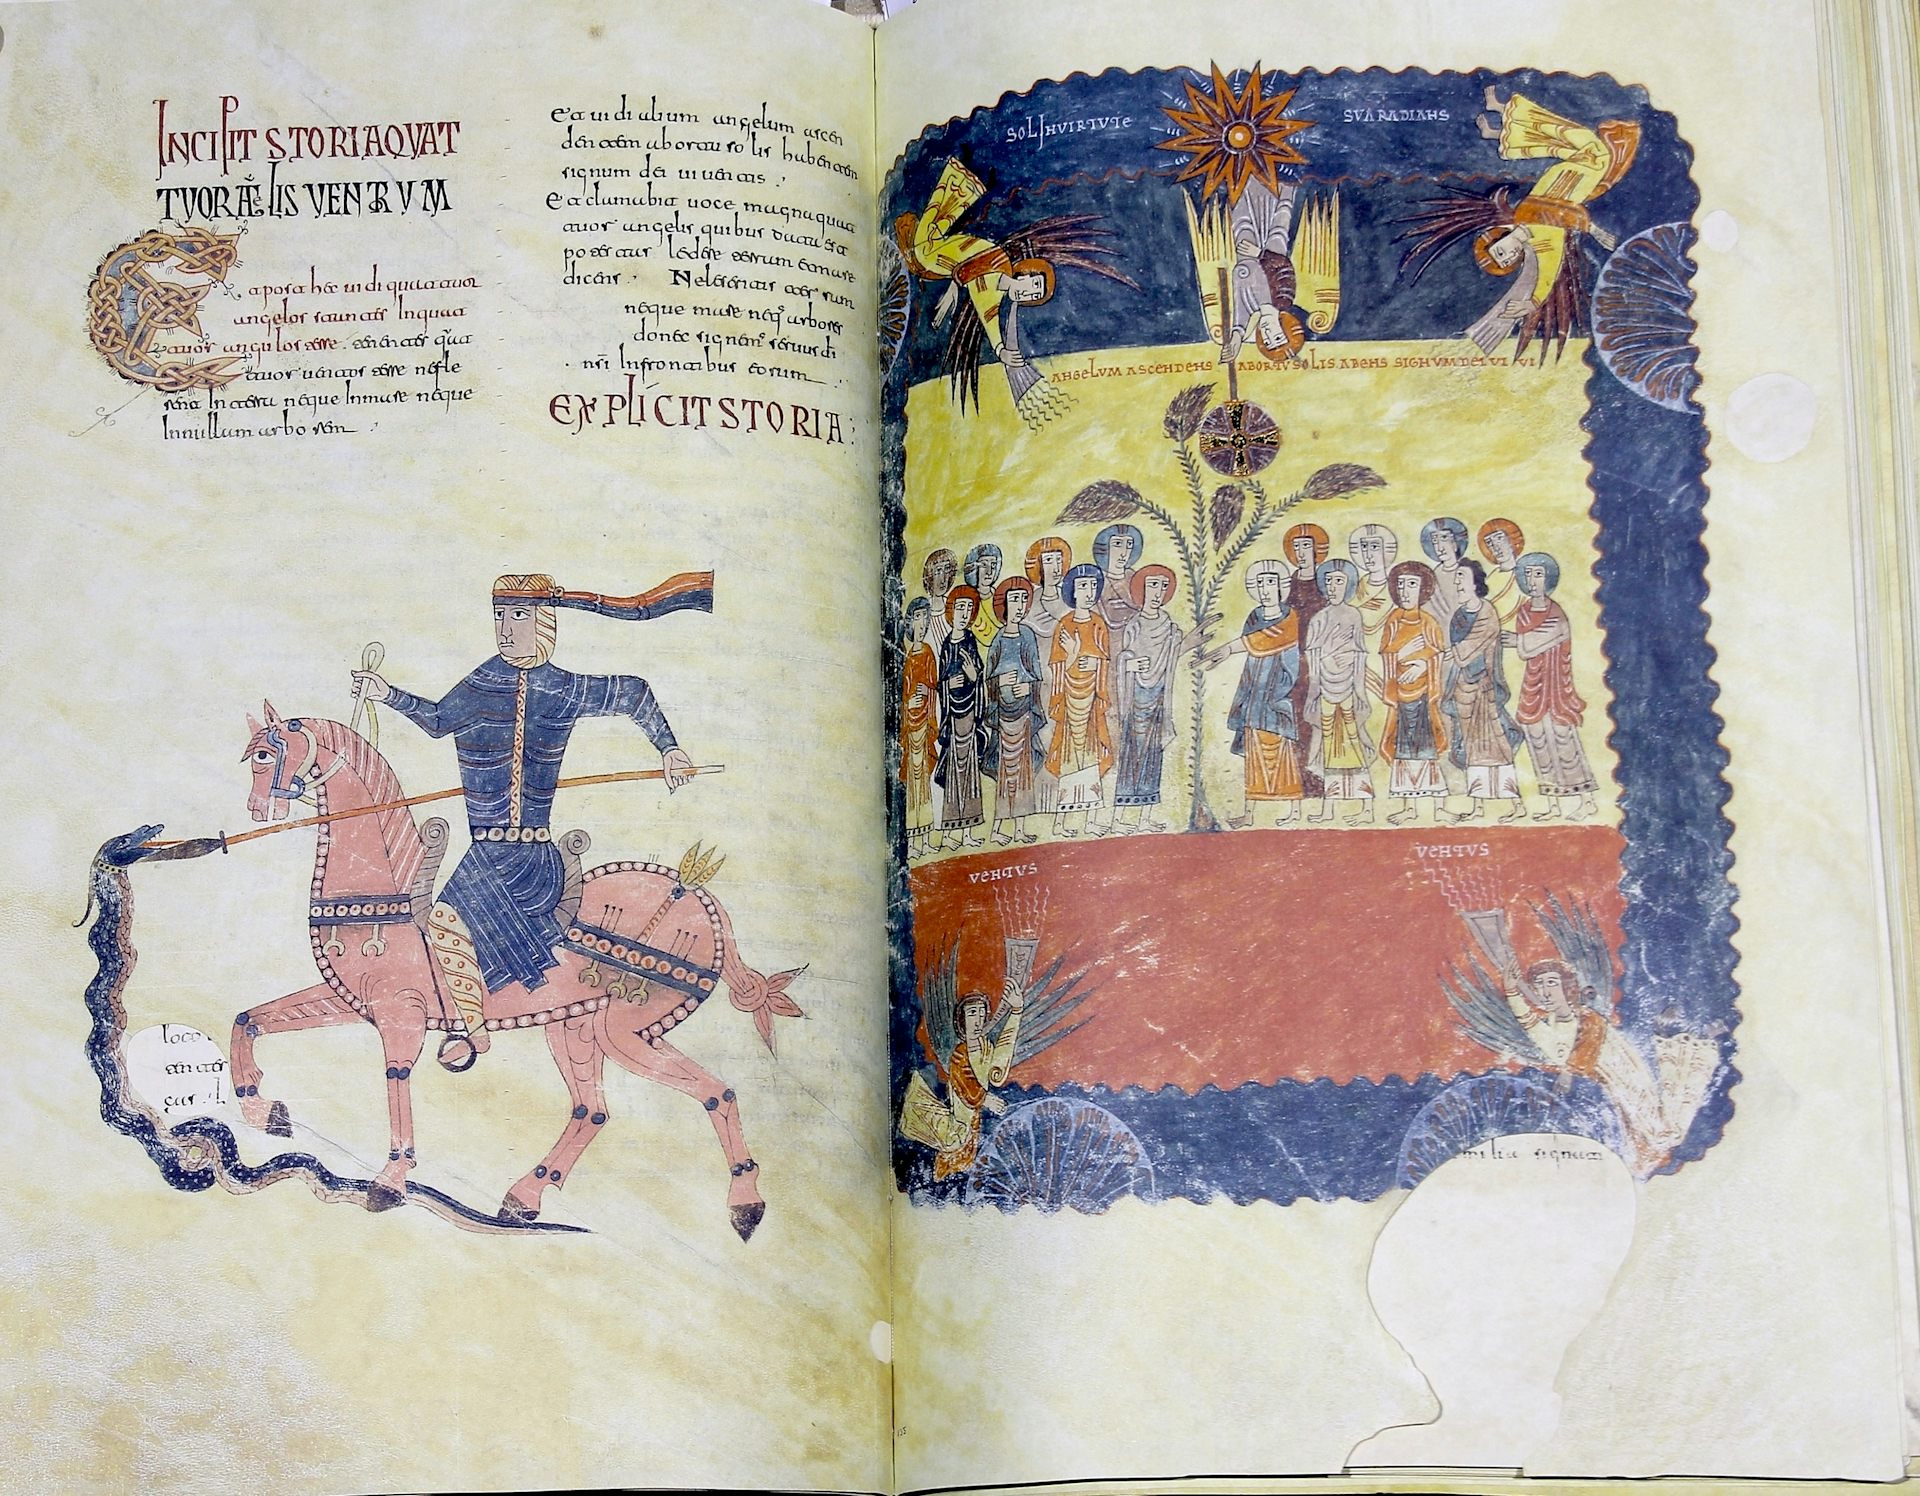 INCIPIT STORIA QVAT
TVOR VENTRVM
Et post hec uidi quattuor
angelos stantes In quat
tuor angulos terre. tenentes qua
tuor uentos terre ne fle
rent In terra neque In mare neque
In nullam arborem
Et uidi alium angelum ascen
dentem ab ortu solis habentem
signum dei uiuentis
Et clamabit uoce magna quat
tuor angelis quibus datu est
potestas ledere terram et mare
dicens. Ne leseritis
neque mare neq arbores
donec signem seruus di
nsi In frontibus eorum
EXPLICIT STORIA
SOL IN VIRTVTE SVA RADIANS
ANGELVM ASCENDENS AB ORTV SOLIS ABENS SIGNVM DEI VIVI
VENTVS
VENTVS
milia signati
155